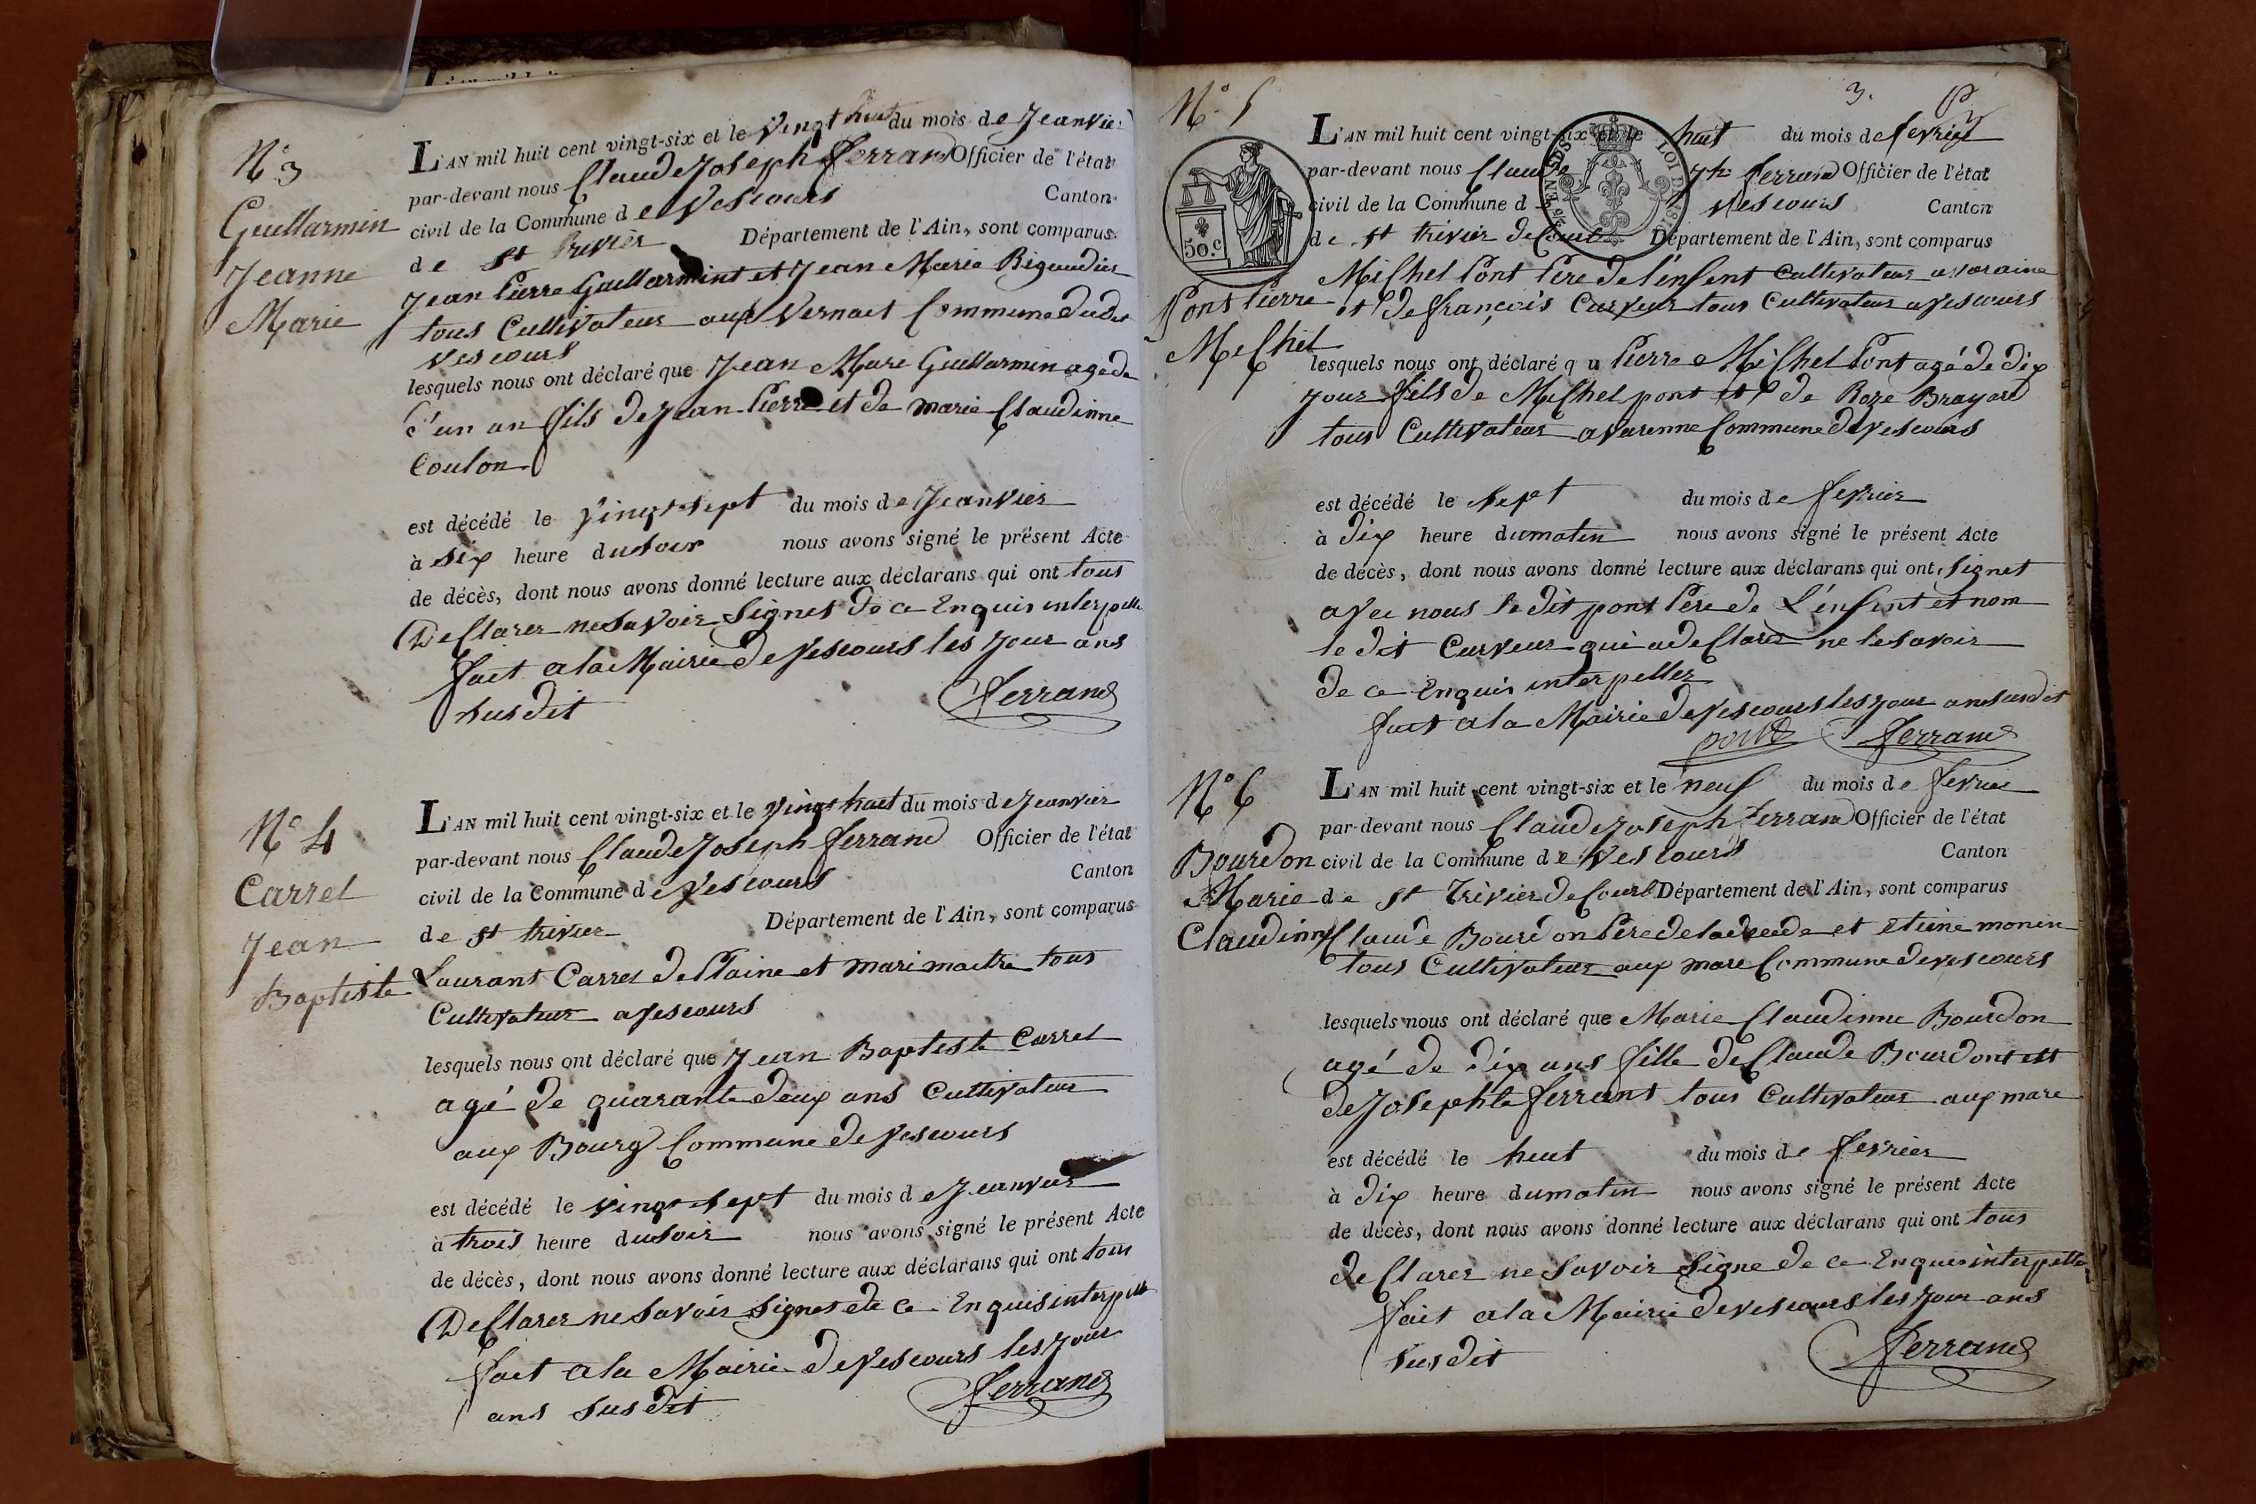 N.° 3
Guillarmin
Jeanne
Marie
L'AN mil huit cent vingt-six et le vingt huit du mois de Jeanvier
par-devant nous Claude Joseph ferrand Officier de l'état
civil de la Commune de Vescours Canton
de st trivier Département de l'Ain, sont comparus
Jean Pierre Guillarmint et Jean Marie Rigaudier
tous Cultivateur aux Vernaes Commune dudit
Vescours
lesquels nous ont déclaré que Jean Marie Guillarmin agé de
d'un an fils de Jean Pierre et de marie Claudinne
Coulon
est décédé le vingt sept du mois de Jeanvier
à six heure du soir nous avons signé le présent Acte
de décès, dont nous avons donné lecture aux déclarans qui ont tous
Declarer ne Savoir Signer de ce Enquis interpelle
fait a la Mairie de Vescours les jour ans
sus dit
ferrand
N° 4
Carrel
Jean
Baptiste
L'AN mil huit cent vingt-six et le vingt huit du mois de Jeanvier
par-devant nous Claude Joseph ferrand Officier de l'état
civil de la Commune de Vescours Canton
de st trivier Département de l'Ain, sont comparus
Laurant Carrel de Plaine et mari maitre tous
Cultivateur a Vescours
lesquels nous ont déclaré que Jean Baptiste Carrel
agé de quarante deux ans Cultivateur
aux Bourg Commune de Vescours
est décédé le vingt sept du mois de Jeanvier
à trois heure du soir nous avons signé le présent Acte
de décès, dont nous avons donné lecture aux déclarans qui ont tous
Declarer ne Savoir Signer de ce Enquis interpelle
fait a la Mairie de Vescours les jour
ans sus dit
ferrand
3.
N.° 5
Pont Pierre
Michel
50.c
LOI DE
EN SUS
L'AN mil huit cent vingt-six et le huit du mois de fevrier
par-devant nous Claude jh ferrand Officier de l'état
civil de la Commune d Vescours Canton
de st trivier de Court Département de l'Ain, sont comparus
Michel Pont Pere de l'enfent Cultivateur a varaine
et de françois Curveur tous Cultivateur a Vescours
lesquels nous ont déclaré q u Pierre Michel Pont agé de dix
jour fils de Michel pont et de Roze Brayard
tous Cultivateur a varenne Commune de Vescours
est décédé le sept du mois de fevrier
à dix heure du matin nous avons signé le présent Acte
de décès, dont nous avons donné lecture aux déclarans qui ont signet
avec nous le dit pont Pere de L'enfent et nom
le dit Curveur qui a declarer ne le savoir
de ce Enquis interpeller
fait a la Mairie de Vescours les jour ans susdit
pont ferrand
N° 6
Bourdon
Marie
Claudinne
L'AN mil huit cent vingt-six et le neuf du mois de fevrier
par-devant nous Claude Joseph ferrand Officier de l'état
civil de la Commune de Vescours Canton
de st Trivier de Court Département de l'Ain, sont comparus
Claude Bourdon Pere de la decede et Etiene monin
tous Cultivateur aux mare Commune de vescours
lesquels nous ont déclaré que Marie Claudinne Bourdon
agé de dix ans fille de Claude Bourdont est
de Josephte ferrant tous Cultivateur aux mare
est décédé le huit du mois de fevrier
à dix heure du matin nous avons signé le présent Acte
de décès, dont nous avons donné lecture aux déclarans qui ont tous
declarer ne Savoir Signe de ce Enquis interpelle
fait a la Mairie de vescours les jour ans
sus dit
ferrand